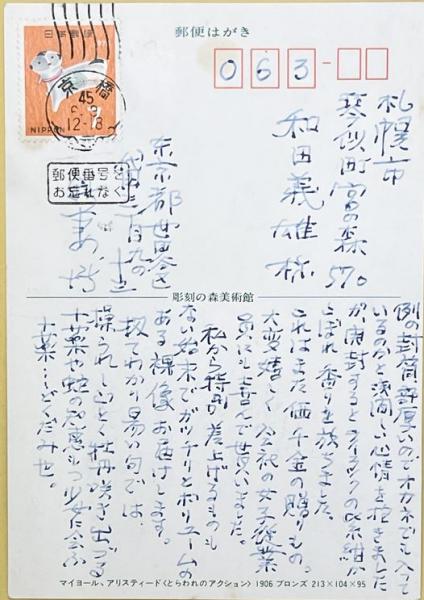 郵便はがき
063-
日本郵便
NIPPON
京橋
45
12-18
郵便番号を
お忘れなく
札幌市
琴似町宮の森570
和田義雄様
東京都世田谷区
彫刻の森美術館
例の封筒が厚いのでオカネでも入って
いるのかと浅間しい心情を抱きました
が、開封するとライラックの花紙が
こぼれ香りを放ちました。
これはまた価千金の贈りもの。
大変嬉しく会社の女子従業
員にも喜んで貰いました。
私から特別差上げるものも
ない始末でガッチリとボリュームの
ある裸像お届けします。
扨てわかり易い句では、
裸うれし心とく牡丹咲き出づる
十薬や蛇の
少女に会ふ
十薬…どくだみせ。
マイヨール、アリスティード〈とらわれのアクション〉 1906 ブロンズ 213×104×95